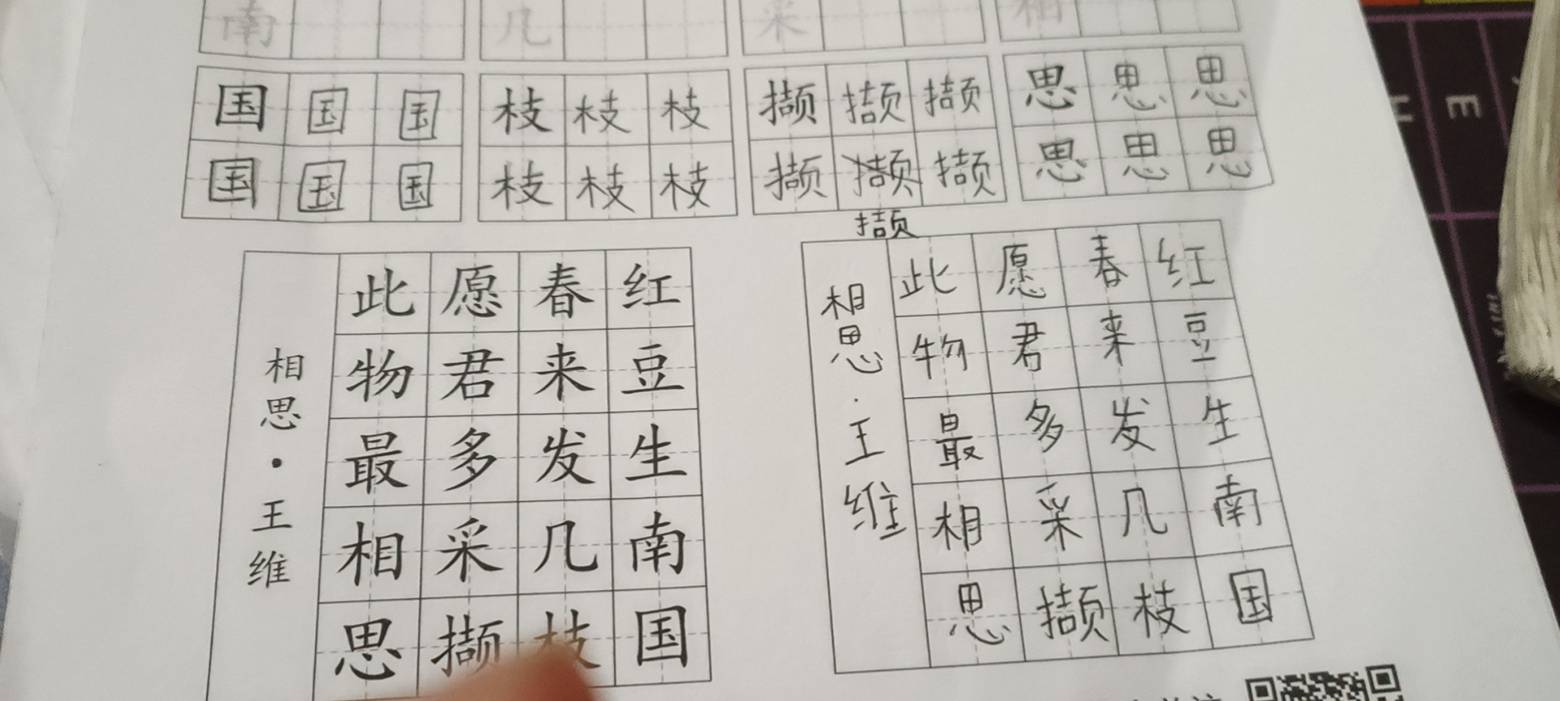 南 几 采 相
国 国 国 枝 枝 枝 撷 撷 撷 思 思 思
国 国 国 枝 枝 枝 撷 撷 撷 思 思 思
撷
红豆生南国
春来发几枝
愿君多采撷
此物最相思
相思·王维
红豆生南国
春来发几枝
愿君多采撷
此物最相思
相思·王维
E